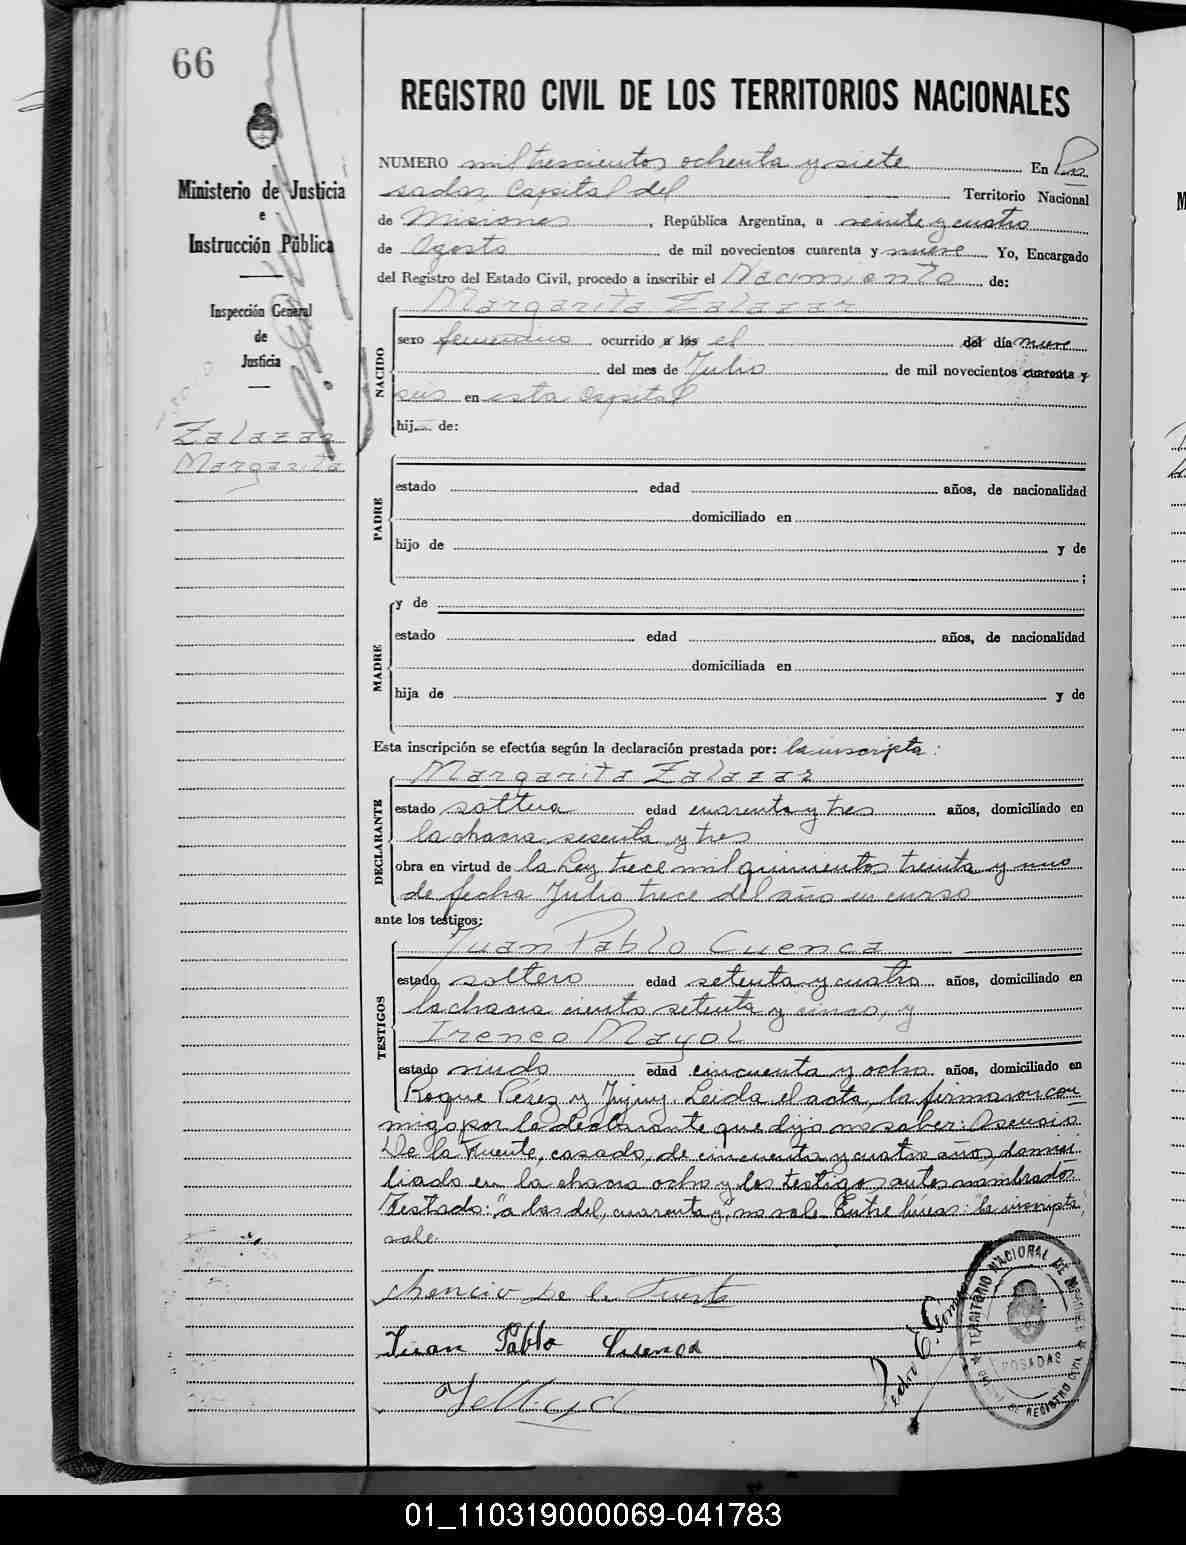 66
REGISTRO CIVIL DE LOS TERRITORIOS NACIONALES
Ministerio de Justicia
e
Instrucción Pública
Inspección General
de
Justicia
Zalazar
Margarita
NUMERO mil trescientos ochenta y siete En Po
sadas, Capital del Territorio Nacional
de Misiones, República Argentina, a veinte y cuatro
de Agosto de mil novecientos cuarenta y nueve Yo, Encargado
del Registro del Estado Civil, procedo a inscribir el Nacimiento de:
NACIDO
Margarita Zalazar
sexo femenino, ocurrido a las el del día nueve
del mes de Julio de mil novecientos cuarenta y
seis en esta Capital
hij de:
PADRE
estado edad años, de nacionalidad
domiciliado en
hijo de y de
;
MADRE
y de
estado edad años, de nacionalidad
domiciliada en
hija de y de
Esta inscripción se efectúa según la declaración prestada por: la inscripta:
DECLARANTE
Margarita Zalazar
estado soltera edad cuarenta y tres años, domiciliado en
la chacra sesenta y tres
obra en virtud de la Ley trece mil quinientos treinta y uno
de fecha Julio trece del año en curso
ante los testigos:
TESTIGOS
Juan Pablo Cuenca
estado soltero edad setenta y cuatro años, domiciliado en
la chacra ciento setenta y cinco, y
Ireneo Mayol
estado viudo edad cincuenta y ocho años, domiciliado en
Roque Pérez y Jujuy. Leida el acta, la firmaron con
migo por la declarante que dijo no saber: Asencio
De la Fuente, casado, de cincuenta y cuatro años, domici
liado en la chacra ocho y los testigos antes nombrados
Testado: "a las del, cuarenta y", no vale. Entre líneas: "la inscripta",
vale.
De la Fuente
Juan Pablo Cuenca
Pedro E. Gomez
TERRITORIO NACIONAL DE MISIONES
POSADAS
DE REGISTRO CIVIL
01_110319000069-041783